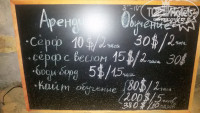 Аренда Обучение
• Сёрф 10$/2 часа 30$/2 часа
• сёрф с веслом 15$/2 часа 30$
• Боди борд 5$/15 часа
• Кайт обучение 180$/2 часа
200$/5
380$/